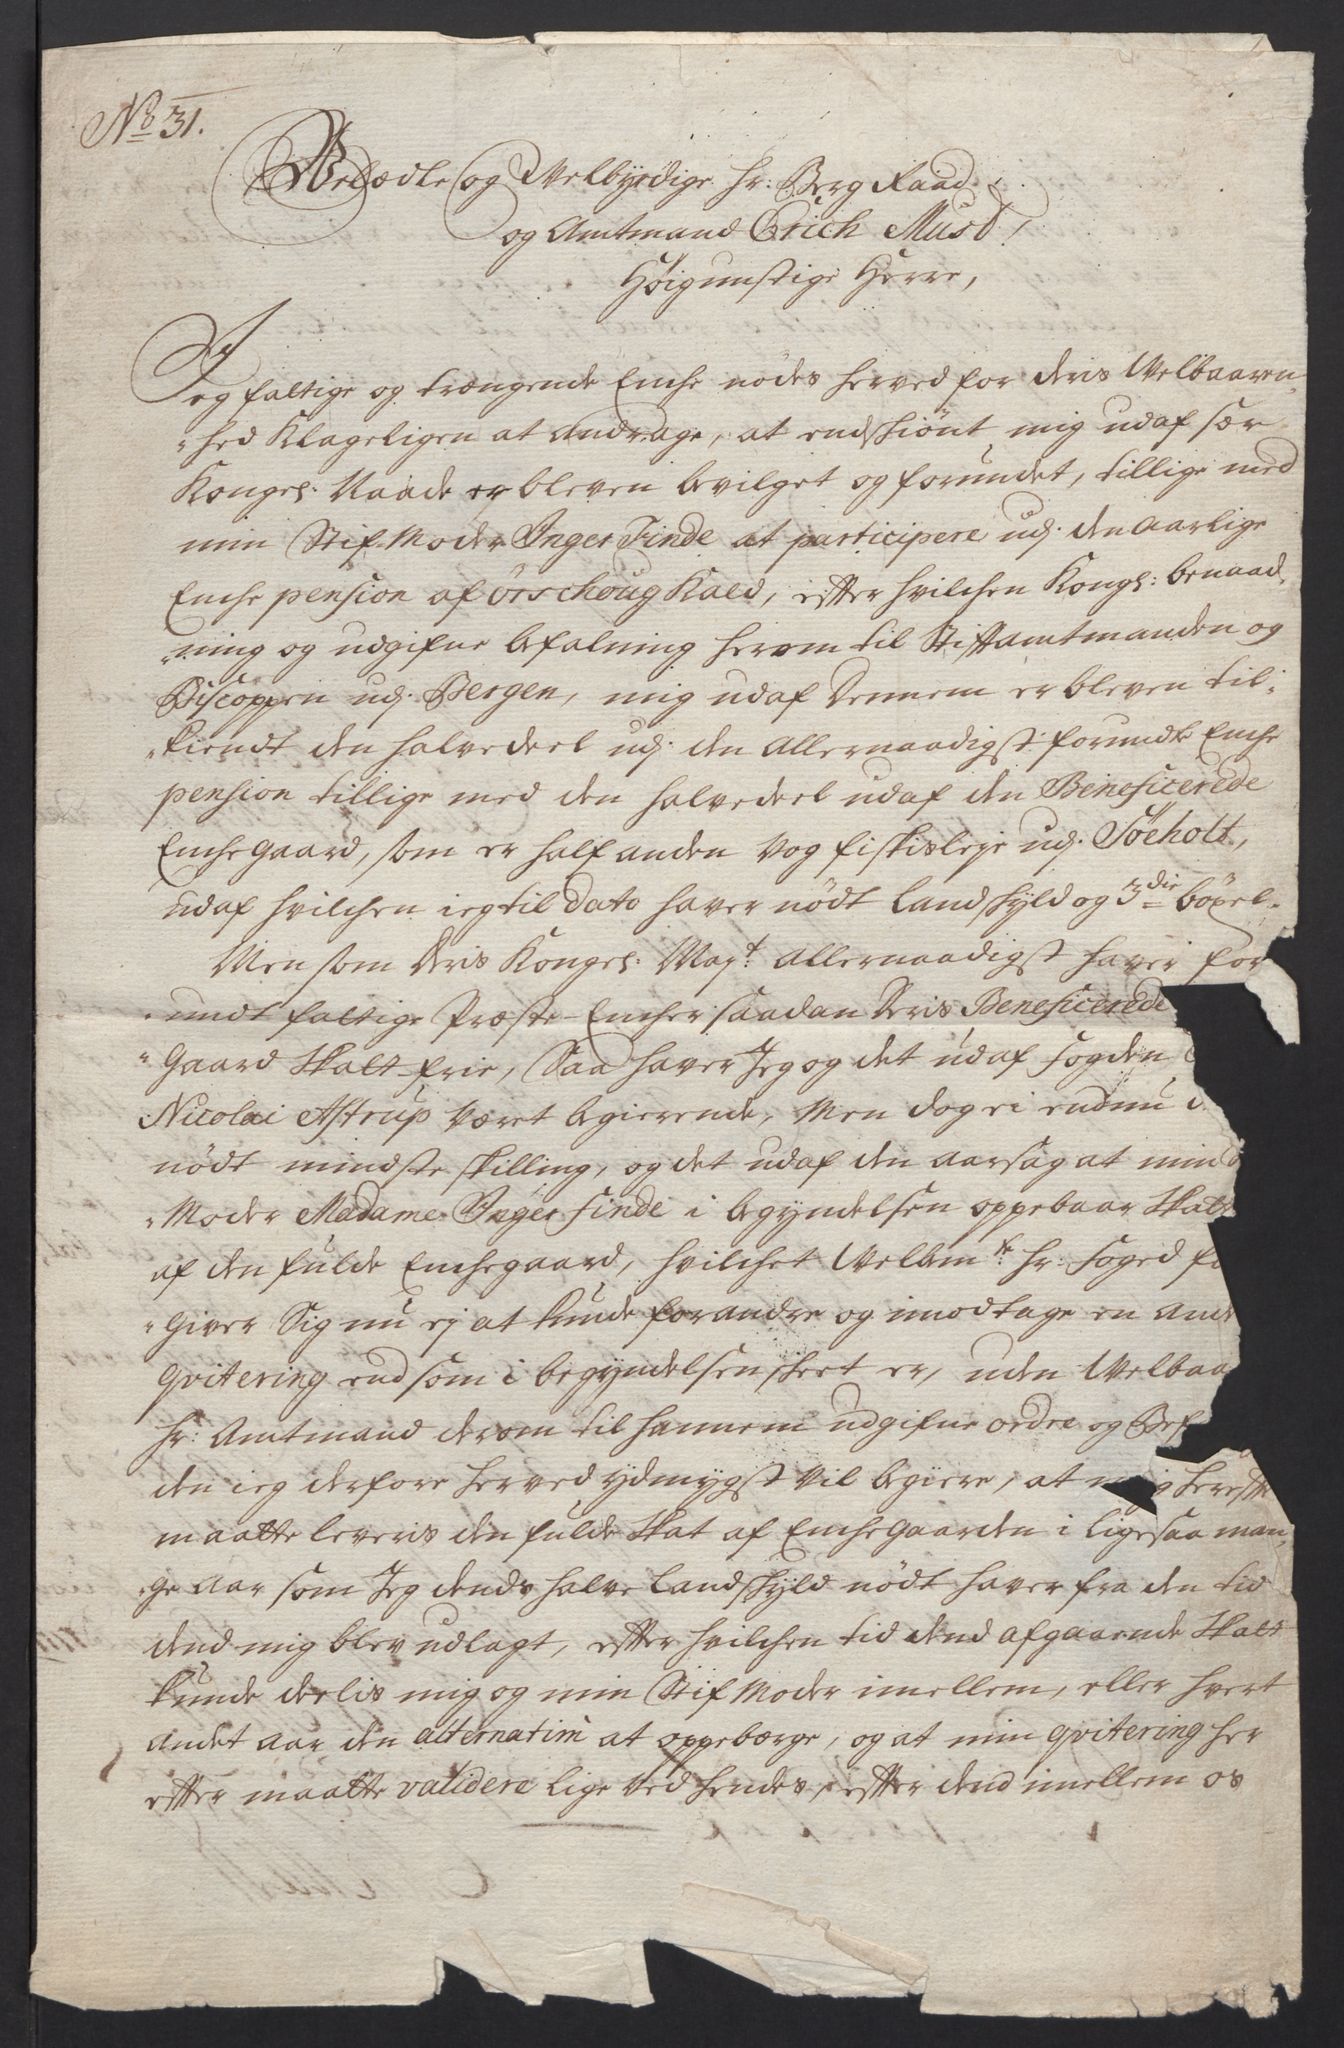 No 31.
Velædle og Velbyrdige Hr: Berg Raad
og Amtmand Erich Must!
Høigunstige Herre,
Jeg fattige og trængende Enche nødes herved for deris Velbaaren-
-hed Klageligen at Andrage, at endskiønt mig udaf sær
Kongel: Naade er bleven bevilget og forundet, tillige med
min Stif-Moder Inger Finde at participere udj. den aarlige
Enche pension af Ørschoug Kald, effter hvilchen Kongl: benaad-
-ning og udgifne befalning herom til Stifftamtmanden og
Biscoppen udj. Bergen, mig udaf Dennem er bleven til-
-kiendt den halvedeel udj. den Allernaadigst forundte Enche
pension tillige med den halvedeel udaf den Beneficerede
Enchegaard, som er half anden Vog fiskisleje udj. Søeholt,
udaf hvilchen ieg til dato haver nødt Landskyld og 3die bøxel.
Men som Deris Kongel: Mayt: Allernaadigst haver for
-undt fattige Præste-Encher saadan Deris Beneficerede
-Gaard Skatt-frie, Saa haver Jeg og det udaf fogden
Nicolai Astrup Været begierende, Men dog ei endnu
nødt mindste skilling, og det udaf den aarsag at min
-Moder Madame Inger Finde i begyndelsen oppebaar Skatt
af den fulde Enchegaard, hvilchet Velbemte: Hr: foged
-Giver Sig nu ej at kunde forandre og imodtage en
Qvitering end som i begyndelsen skeet er, uden Velbaa
Hr: Amtmand derom til hannem udgifne ordre og Bef
den ieg derfore herved ydmygst Vil begiere, at mig hereffte
maatte leveris den fulde Skat af Enche Gaarden i ligesaa man-
-ge Aar som Jeg dends halve Landskyld nødt haver fra den tid
dend mig blev udlagt, effter hvilchen tid dend afgaaende Skatt
kunde deelis mig og min Stif Moder imellem, eller hvert
andet aar den alternatim at oppebærge, og at min qvitering her
effter maatte validere lige ved hendes, effter dend imellem os